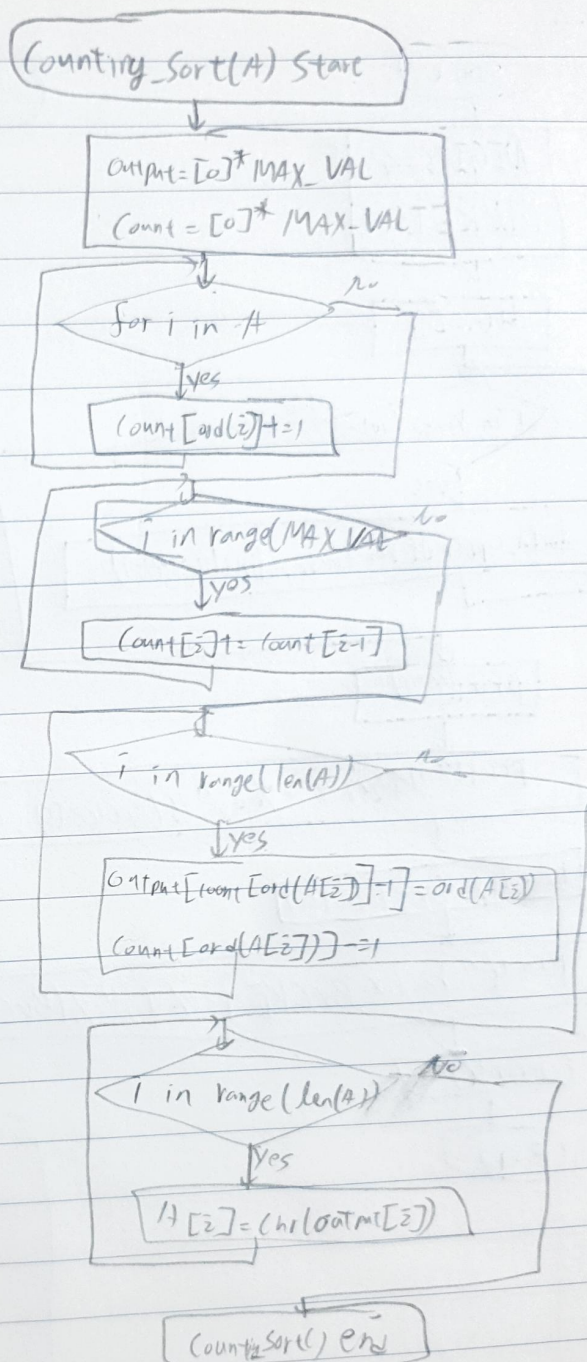 Counting_Sort(A) Start
Output=[0]*MAX_VAL
Count=[0]*MAX_VAL
for i in A
no
yes
Count[ord(i)]+=1
i in range(MAX_VAL
no
yes
Count[i]+=Count[i-1]
i in range(len(A))
no
yes
Output[count[ord(A[i])]-1]=ord(A[i])
Count[ord(A[i])]-=1
i in range(len(A))
No
yes
A[i]=Chr(outPut[i])
Counting_Sort() end